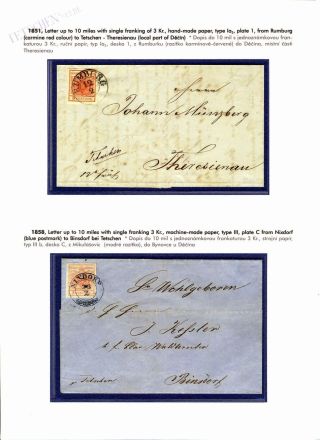 TETSCHEN
1851, Letter up to 10 miles with single franking of 3 Kr., hand-made paper, type Ia₂, plate 1, from Rumburg
(carmine red colour) to Tetschen - Theresienau (local part of Děčín) * Dopis do 10 mil s jednoznámkovou fran-
katurou 3 Kr., ruční papír, typ Ia₂, deska 1, z Rumburku (razítko karmínově-červené) do Děčína, místní části
Theresienau
RUMBURG
Johann Münzberg
Tetschen
Theresienau
1858, Letter up to 10 miles with single franking 3 Kr., machine-made paper, type III, plate C from Nixdorf
(blue postmark) to Binsdorf bei Tetschen * Dopis do 10 mil s jednoznámkovou frankaturou 3 Kr., strojní papír,
deska C, z Mikulášovic (modré razítko), do Bynovce u Děčína
NIXDORF
Sr Wohlgeboren
J. Kessler
Tetschen
Binsdorf